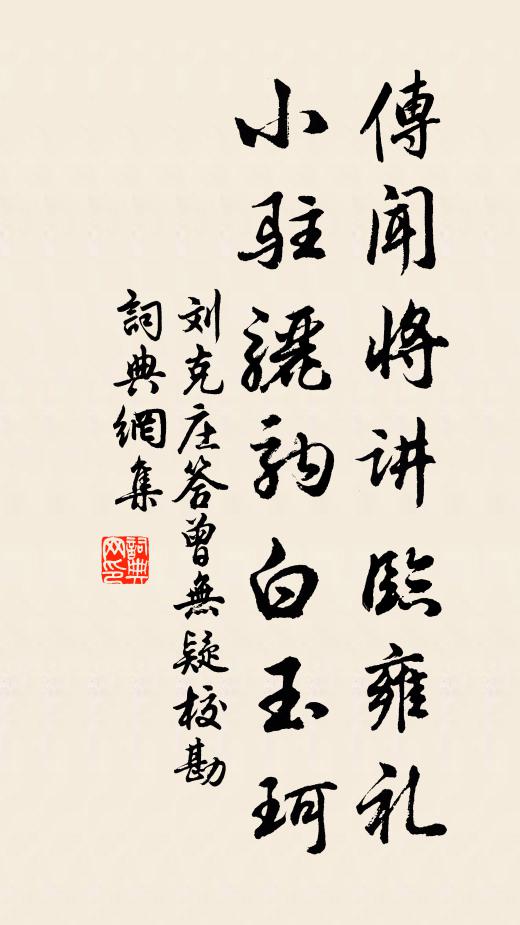 傳聞將讲臨雍礼
小驻骊䩞白玉珂
刘克庄答曾無疑校勘
詞典網集
詞典
网印